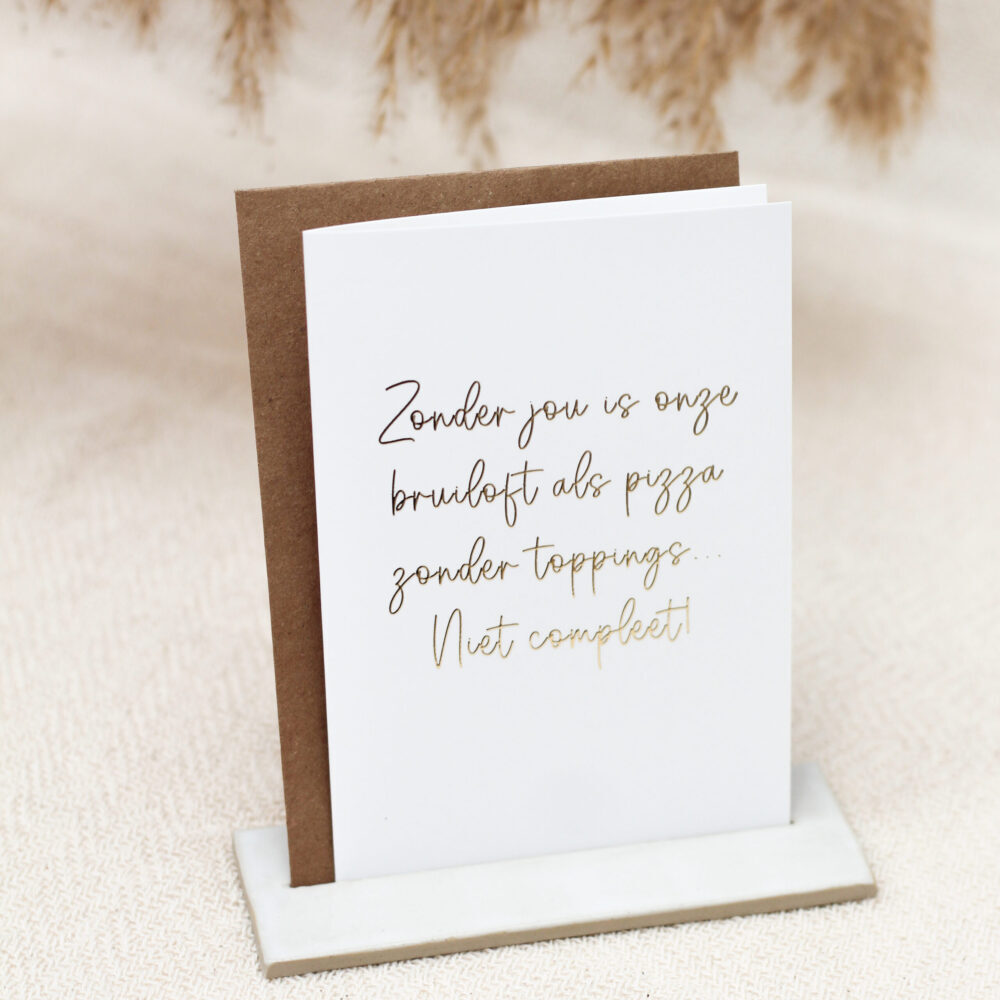 Zonder jou is onze
bruiloft als pizza
zonder toppings...
Niet compleet!